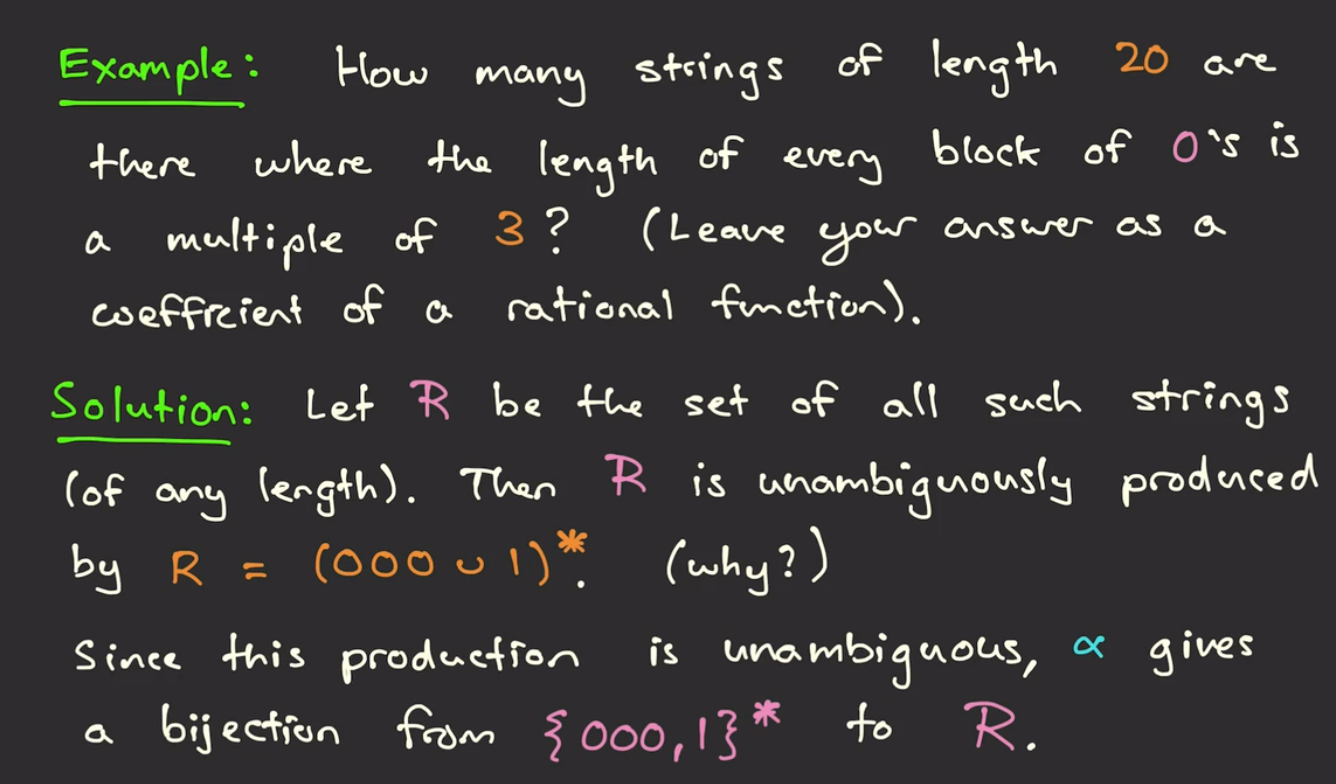 Example: How many strings of length 20 are
there where the length of every block of 0's is
a multiple of 3? (Leave your answer as a
coefficient of a rational function).
Solution: Let R be the set of all such strings
(of any length). Then R is unambiguously produced
by R = (000 ∪ 1)*. (why?)
Since this production is unambiguous, α gives
a bijection from {000,1}* to R.